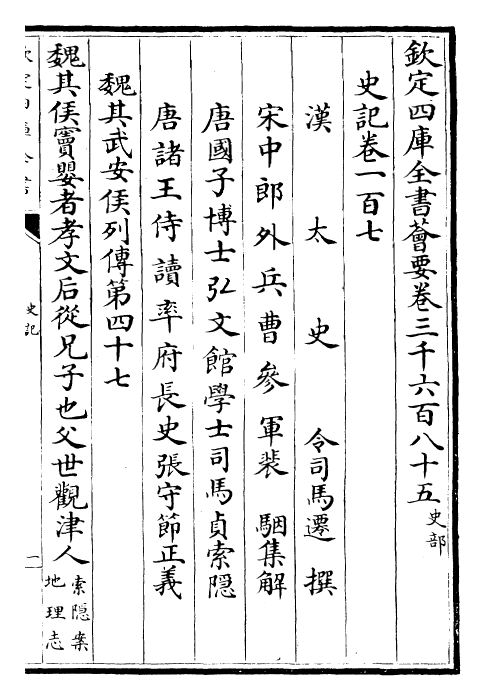 欽定四庫全書薈要卷三千六百八十五 史部
史記卷一百七
漢太史令司馬遷撰
宋中郎外兵曹參軍裴駰集解
唐國子博士弘文館學士司馬貞索隠
唐諸王侍讀率府長史張守節正義
魏其武安侯列傳第四十七
魏其侯竇嬰者孝文后從兄子也父世觀津人 索隠案
地理志
欽定四庫全書
史記
一